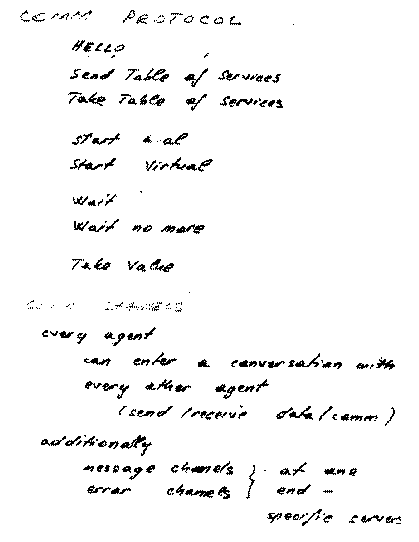 COMM PROTOCOL
HELLO
Send Table of Services
Take Table of Services
Start
Start Virtual
Wait
Wait no more
Take Value
every agent
can enter a conversation with
every other agent
(send/receive data/comm)
additionally
message chanels } at one
error chanels } end -
specific server